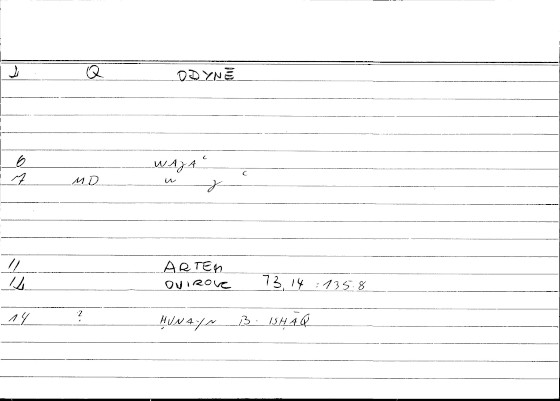 1 Q ODYNĒ
6 WAJAʿ
7 MD w j ʿ
11 ARTEM
12 ONIROCR 73,14 : 135.8
14 ? ḤUNAYN B. ISḤĀQ